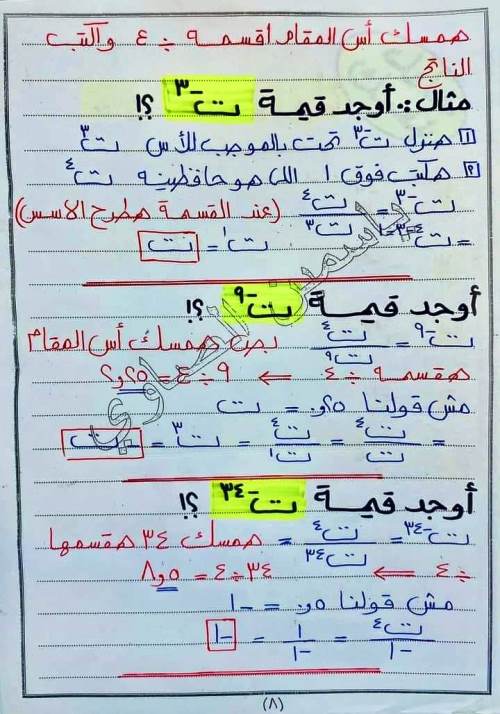 همسك أس المقام أقسمه ÷ ٤ وأكتب
الناتج
مثال :. أوجد قيمة ت⁻³ ؟!
١ هنزل ت⁻³ تحت بالموجب للأس ت³
٢ هكتب فوق ١ اللى هو حافظينه ت⁴
ت⁻³ = ت⁴/ت³ (عند القسمة هطرح الأسس)
= ت⁴⁻³ = ت¹ = ت
أوجد قيمة ت⁻⁹ ؟!
ت⁻⁹ = ت⁴/ت⁹ بص همسك أس المقام
هقسمه ÷ ٤ ⇐ ٩ ÷ ٤ = ٢٫٢٥
مش قولنا ٢٥٫ = ت
= ت⁴/ت = ت⁴/ت¹ = ت³ = -ت
أوجد قيمة ت⁻³⁴ ؟!
ت⁻³⁴ = ت⁴/ت³⁴ = همسك ٣٤ هقسمها
÷ ٤ ⇐ ٣٤ ÷ ٤ = ٨٫٥
مش قولنا ٥٫ = -١
ت⁴/-١ = ١/-١ = -١
(٨)
ياسمين الصاوي